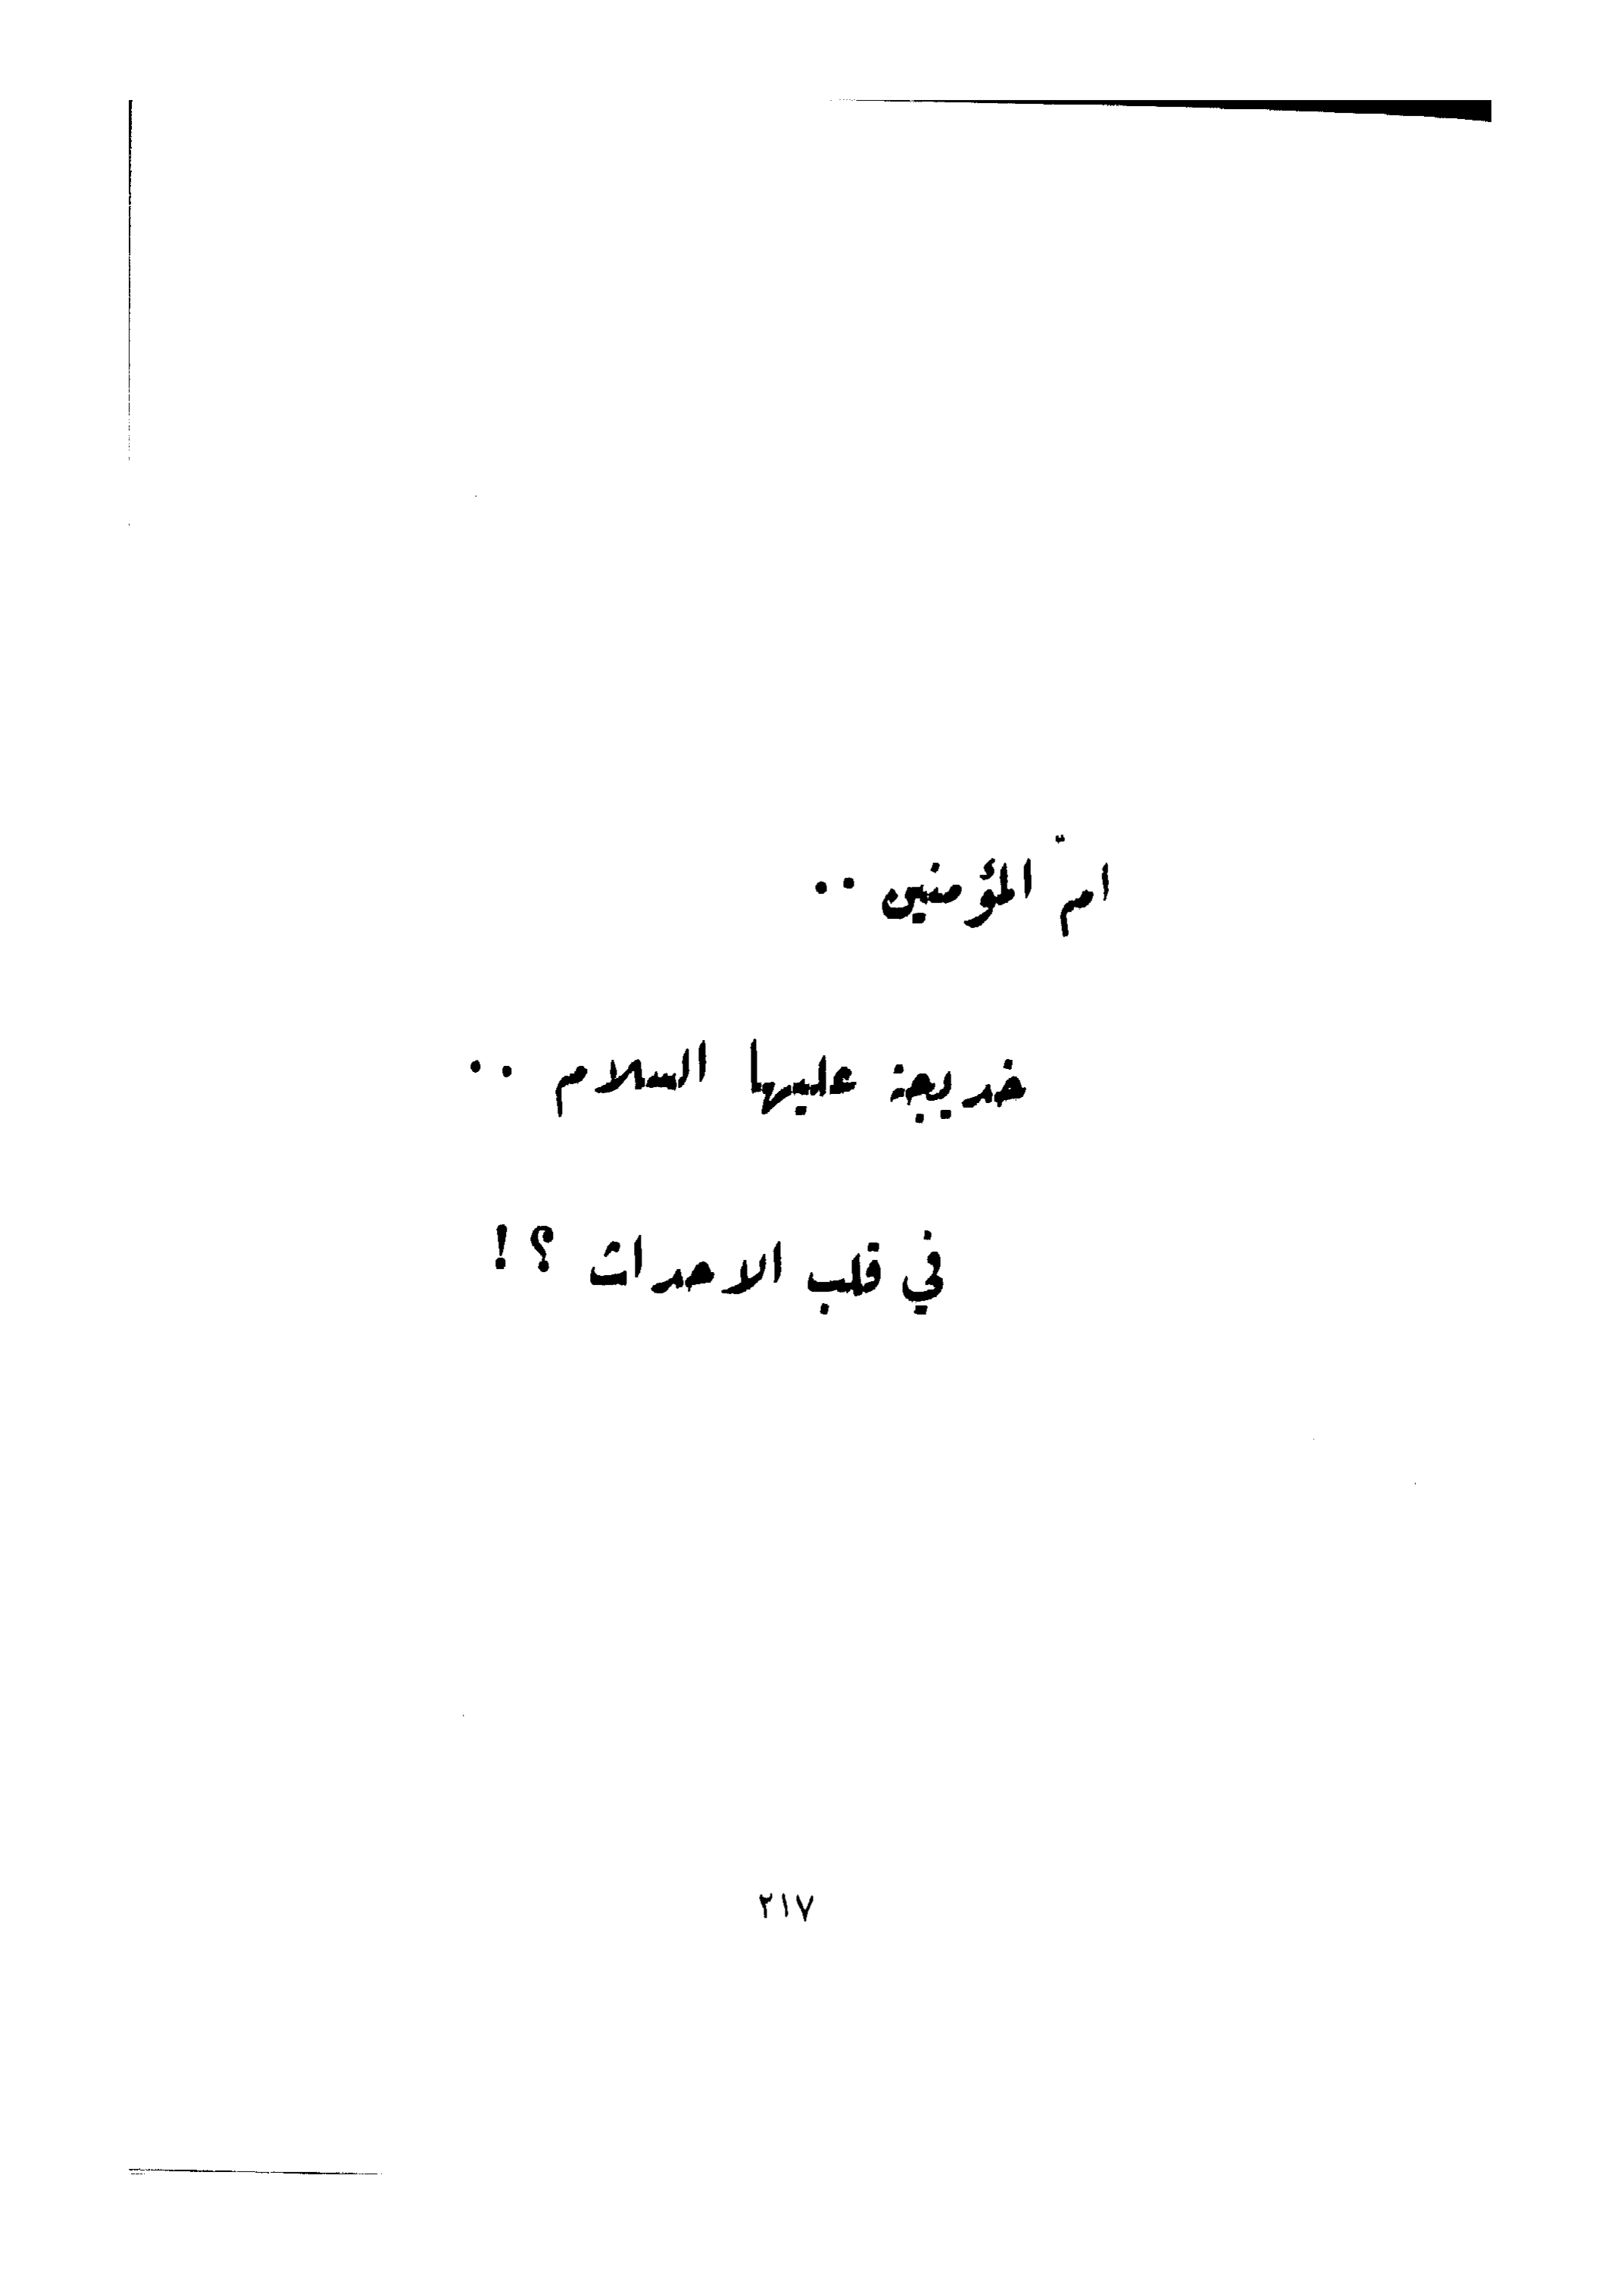 امّ المؤمنين ..
خديجة عليها السلام ..
في قلب الاحداث ؟!
٢١٧